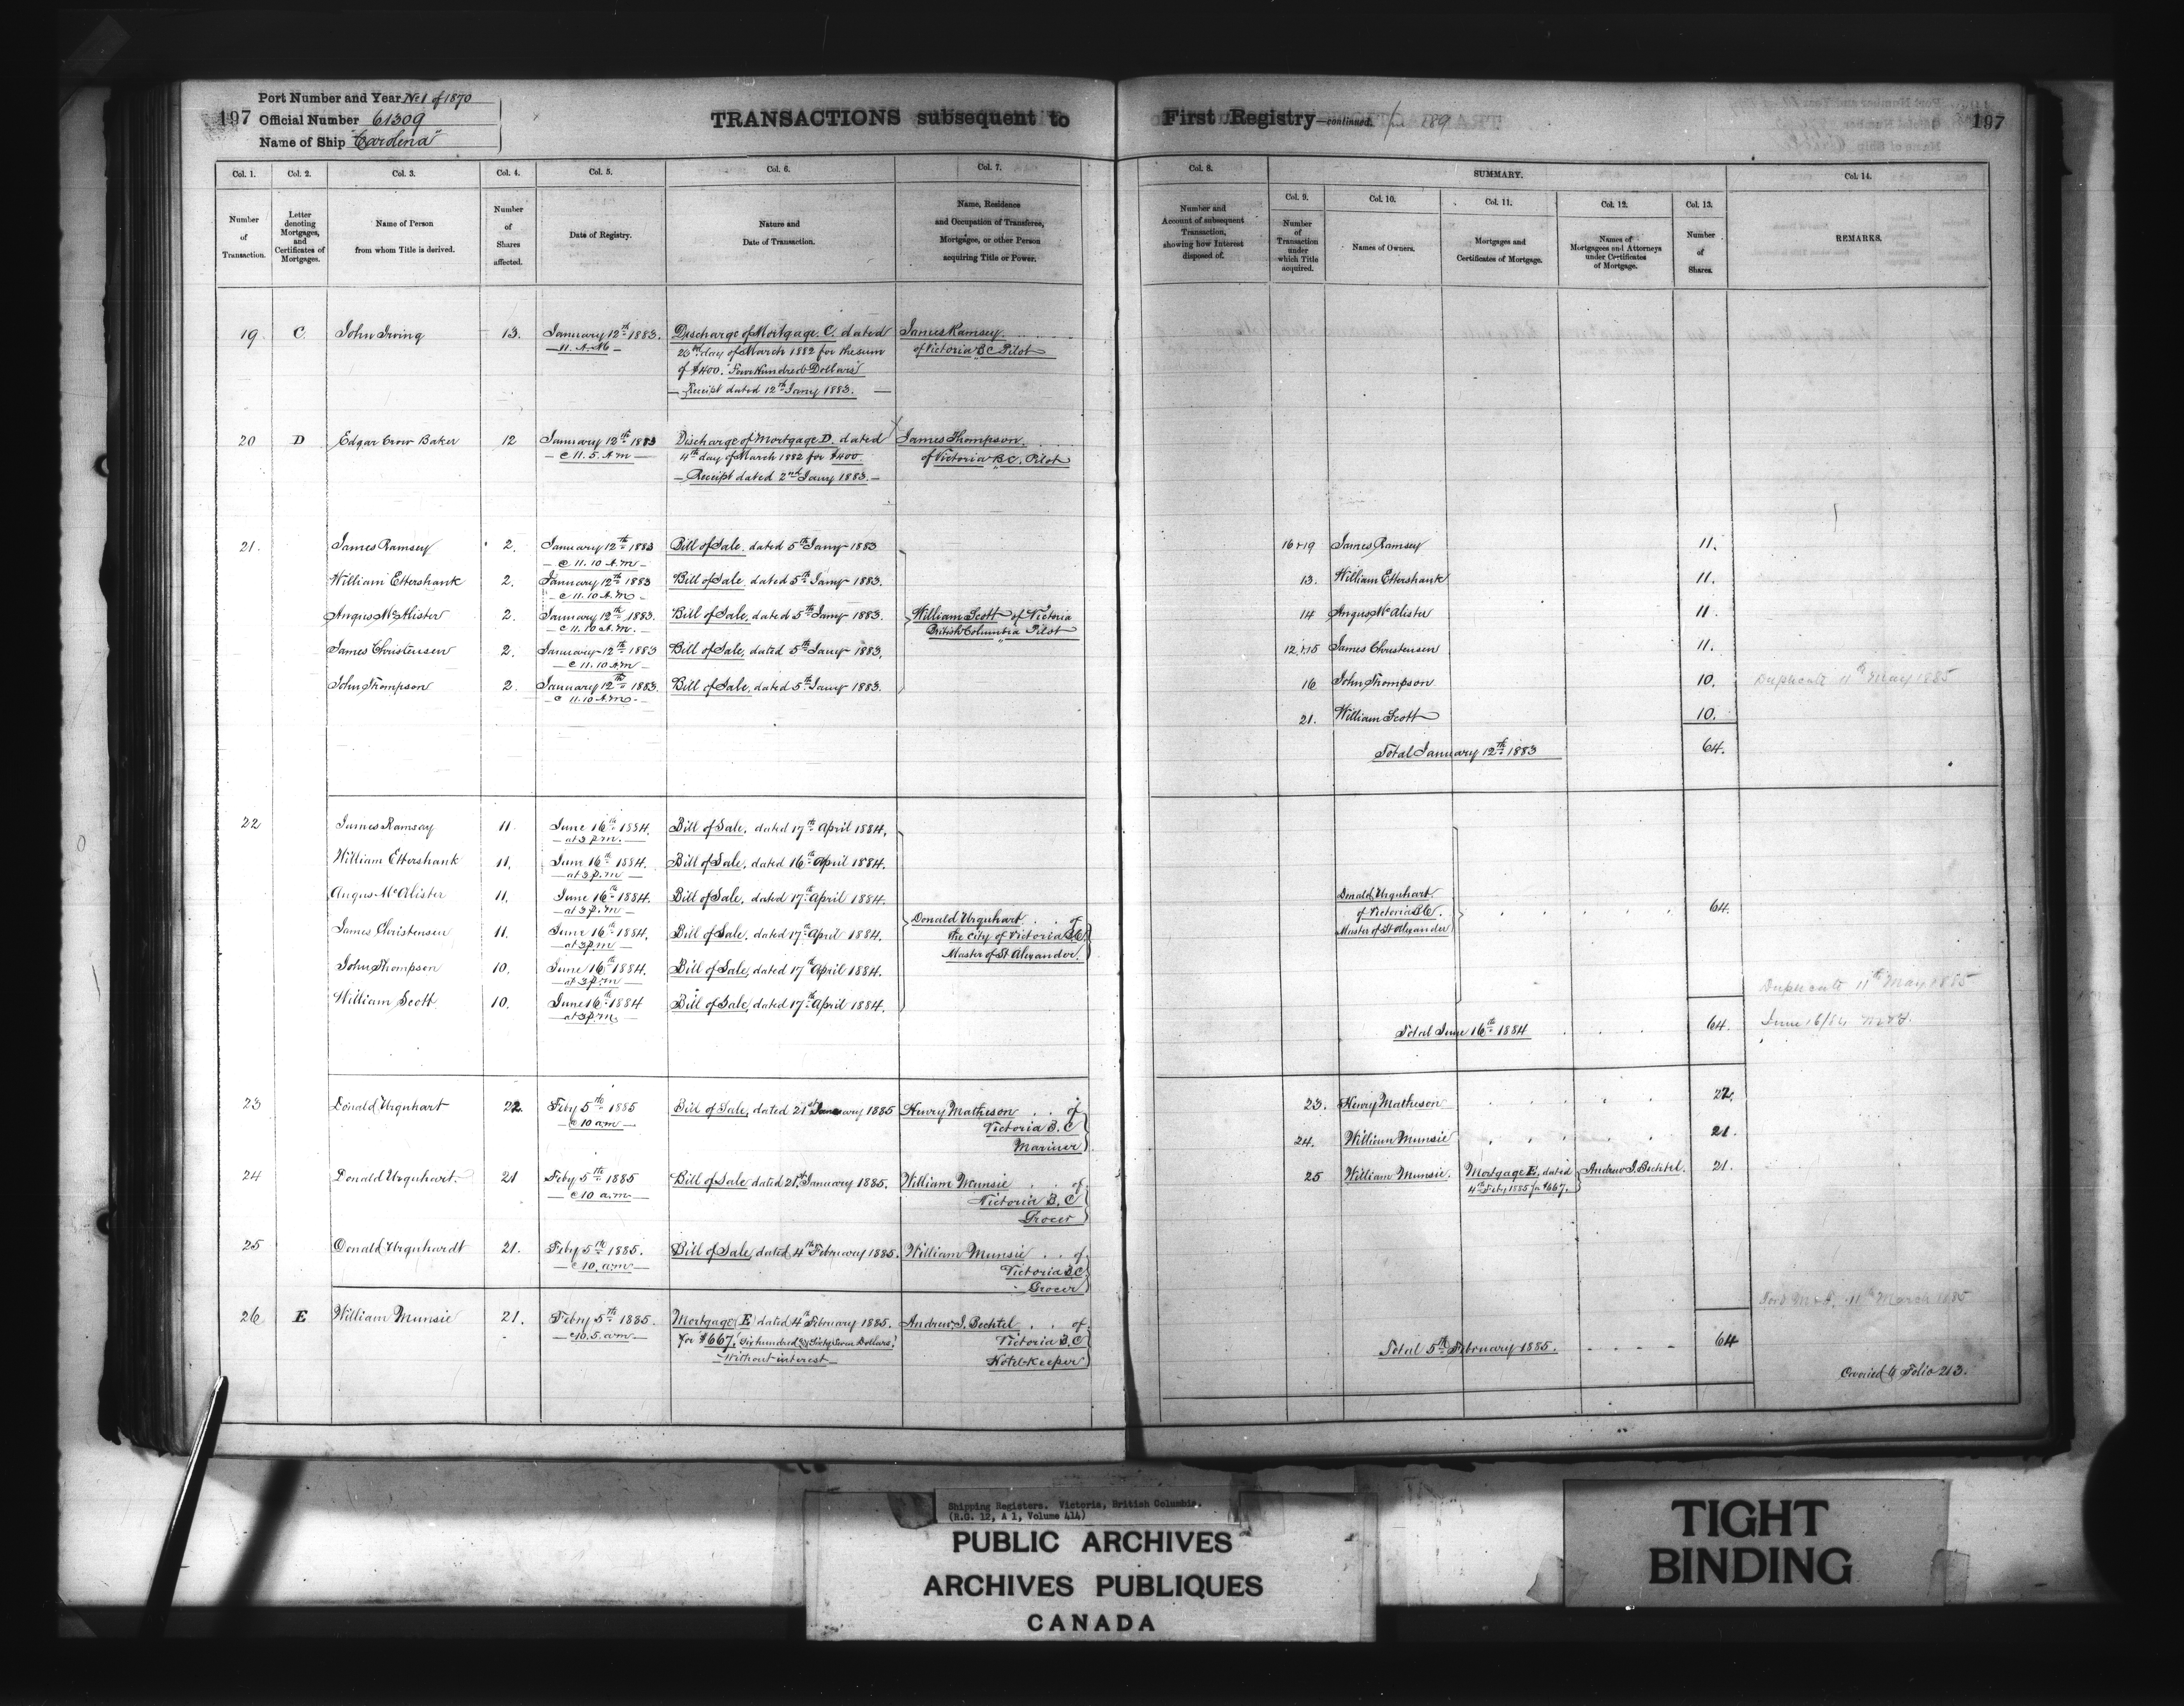 197 Port Number and Year No 1 of 1870
Official Number 61309
Name of Ship "Cardena"
TRANSACTIONS subsequent to First Registry—continued. 189
197
Col. 1. Col. 2. Col. 3. Col. 4. Col. 5. Col. 6. Col. 7. Col. 8. SUMMARY. Col. 14.
Col. 9. Col. 10. Col. 11. Col. 12. Col. 13.
Number of Transaction.
Letter denoting Mortgages, and Certificates of Mortgages.
Name of Person from whom Title is derived.
Number of Shares affected.
Date of Registry.
Nature and Date of Transaction.
Name, Residence and Occupation of Transferee, Mortgagee, or other Person acquiring Title or Power.
Number and Account of subsequent Transaction, showing how Interest disposed of.
Number of Transaction under which Title acquired.
Names of Owners.
Mortgages and Certificates of Mortgage.
Names of Mortgagees and Attorneys under Certificates of Mortgage.
Number of Shares.
REMARKS.
19 C John Irving 13. January 12th 1883. Discharge of Mortgage C. dated James Ramsey
11. A.M. 20th day of March 1882 for the sum of Victoria BC Pilot
of $400. Four Hundred Dollars
Receipt dated 12th Jany 1883.
20 D Edgar Crow Baker 12 January 12th 1883 Discharge of Mortgage D. dated James Thompson
@ 11.5. A.M 4th day of March 1882 for $400 of Victoria B.C. Pilot
Receipt dated 2nd Jany 1883.
21. James Ramsey 2. January 12th 1883 Bill of Sale, dated 5th Jany 1883 16+19 James Ramsey 11.
@ 11.10 A.M
William Ettershank 2. January 12th 1883 Bill of Sale, dated 5th Jany 1883. 13. William Ettershank 11.
@ 11.10 A.M
Angus McAlister 2 January 12th 1883. Bill of Sale, dated 5th Jany 1883. William Scott of Victoria 14 Angus McAlister 11
@ 11.10 A.M. British Columbia Pilot
James Christensen 2. January 12th 1883 Bill of Sale, dated 5th Jany 1883. 12+15 James Christensen 11.
@ 11.10 A.M
John Thompson 2. January 12th 1883. Bill of Sale, dated 5th Jany 1883. 16 John Thompson 10. Duplicate 11th May 1885
@ 11.10 A.M.
21. William Scott 10.
Total January 12th 1883 64.
22 James Ramsay 11 June 16th 1884. Bill of Sale, dated 17th April 1884.
at 3 p.m.
William Ettershank 11. June 16th 1884. Bill of Sale, dated 16th April 1884.
at 3 p.m
Angus McAlister 11. June 16th 1884. Bill of Sale, dated 17th April 1884. Donald Urquhart
at 3 p.m Donald Urquhart of of Victoria BC. 64.
James Christensen 11. June 16th 1884. Bill of Sale, dated 17th April 1884. the City of Victoria BC Master of St Alexander
at 3 p.m Master of St Alexander
John Thompson 10. June 16th 1884. Bill of Sale, dated 17th April 1884.
at 3 p.m
William Scott 10. June 16th 1884 Bill of Sale, dated 17th April 1884. Duplicate 11th May 1885
at 3 p.m.
Total June 16th 1884 64. June 16/84
23 Donald Urquhart 22. Feby 5th 1885 Bill of Sale, dated 21st January 1885 Henry Matheson of 23. Henry Matheson 22.
@ 10 a.m Victoria B.C
Mariner 24. William Munsie 21.
24 Donald Urquhart. 21 Feby 5th 1885 Bill of Sale dated 21st January 1885. William Munsie of 25 William Munsie. Mortgage E, dated Andrew J. Bechtel. 21.
@ 10 a.m. Victoria B.C 4th Feby 1885 for $667.
Grocer
25 Donald Urquhardt 21. Feby 5th 1885. Bill of Sale, dated 4th February 1885. William Munsie of
@ 10. a.m Victoria BC
Grocer
26 E William Munsie 21. Feby 5th 1885. Mortgage (E) dated 4th February 1885. Andrew J. Bechtel of 11th March 1885
@ 10.5. a.m for $667. (Six hundred & Sixty Seven Dollars) Victoria B.C Total 5th February 1885. 64
Without interest Hotel-keeper
Carried to Folio 213.
Shipping Registers. Victoria, British Columbia.
(R.G. 12, A 1, Volume 414)
PUBLIC ARCHIVES
ARCHIVES PUBLIQUES
CANADA
TIGHT
BINDING